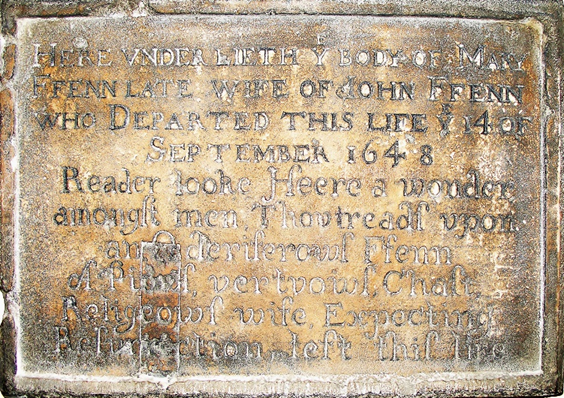 HERE VNDER LIETH Yͤ BODY OF MARY
FFENN LATE WIFE OF JOHN FFENN
WHO DEPARTED THIS LIFE Yͤ 14 OF
SEPTEMBER 1648
Reader looke, Heere a wonder
amongst men, Thou treadst upon
an
A Piows, vertvowſ, Chaſt,
Religeowſ wife, Expecting
Resurrection, left this life